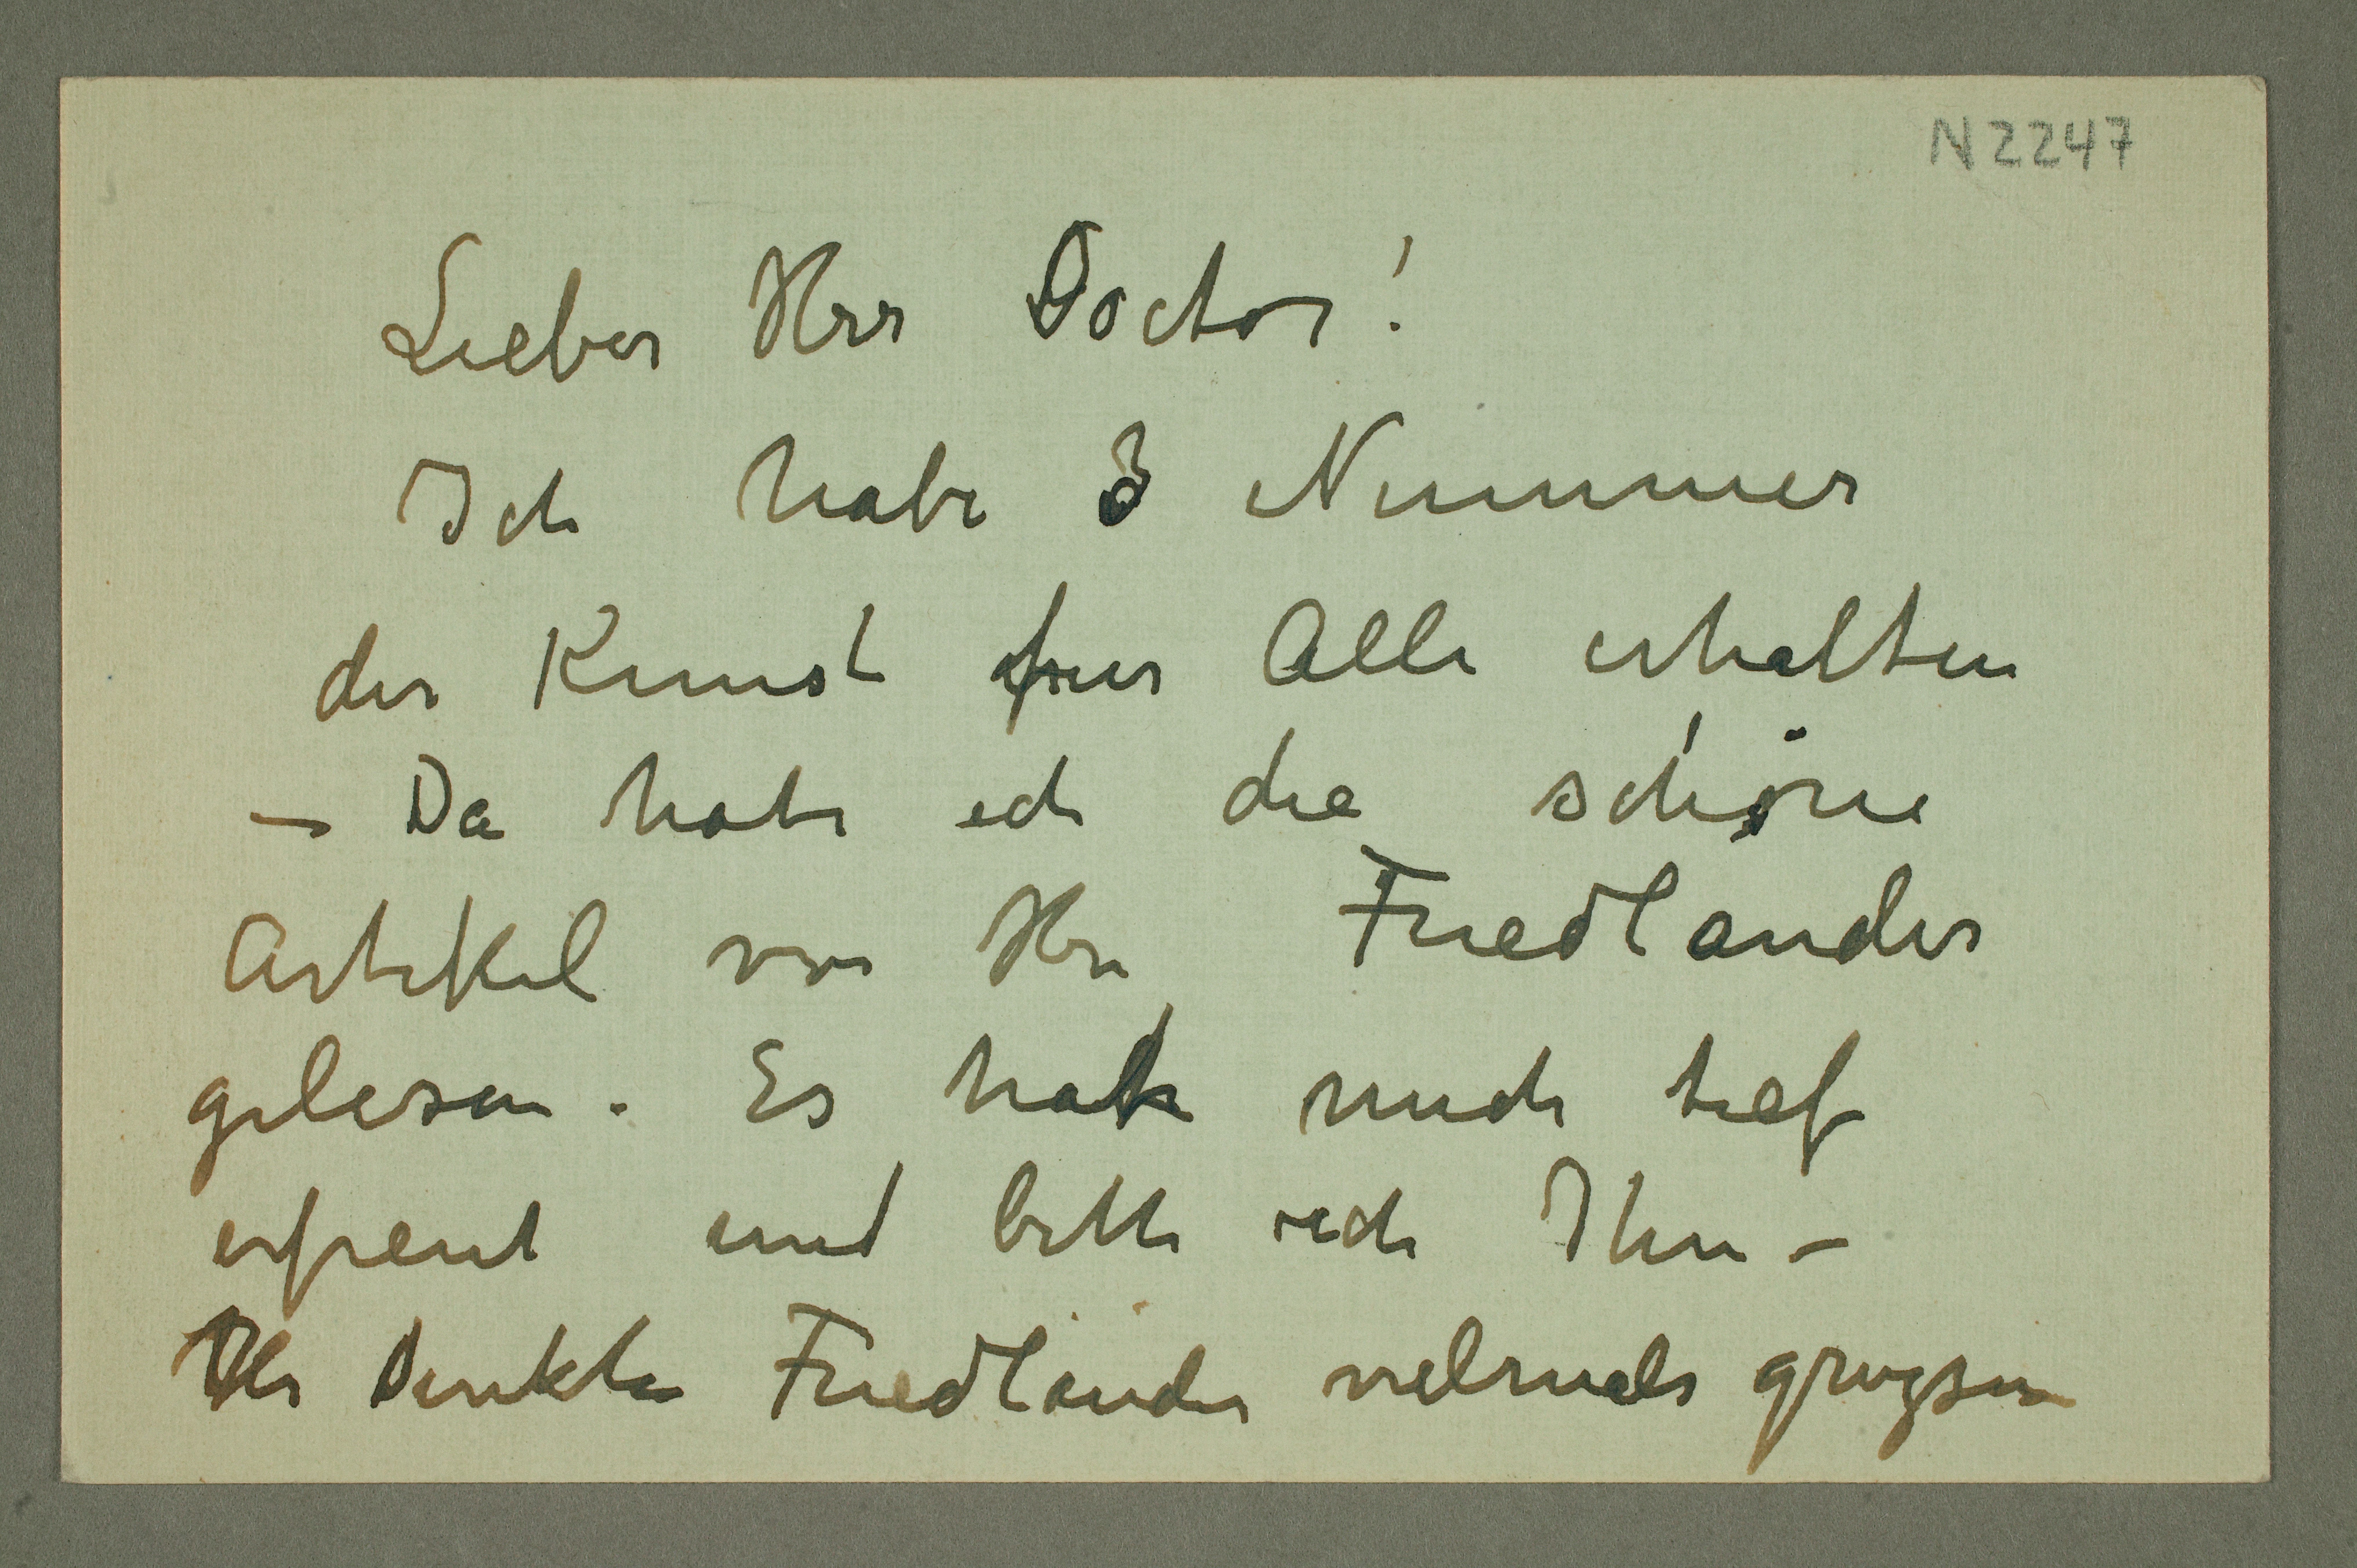 N 2247
Lieber Herr Doctor!
Ich habe 3 Nummer
der Kunst fur Alle erhalten
– Da habe ich die schöne
Artikel von Hrn Friedländer
gelesen. Es hat mich tief
erfreut und bitte ich Ihn –
Direktor Friedländer vielmals grüssen